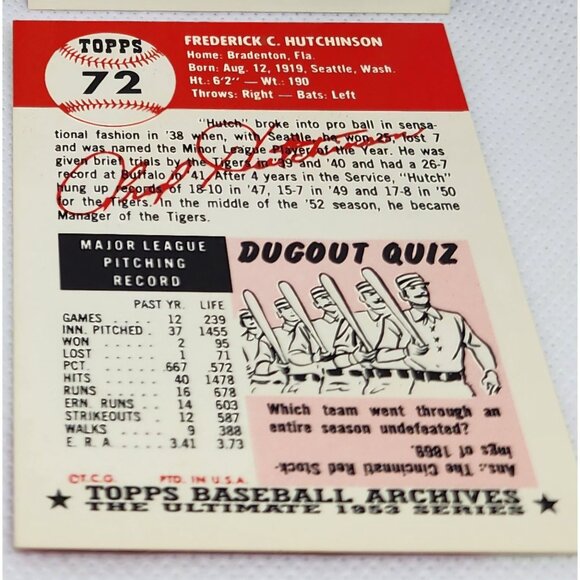 TOPPS
72
FREDERICK C. HUTCHINSON
Home: Bradenton, Fla.
Born: Aug. 12, 1919, Seattle, Wash.
Ht.: 6'2" — Wt.: 190
Throws: Right — Bats: Left
"Hutch" broke into pro ball in sensa-
tional fashion in '38 when, with Seattle, he won 25, lost 7
and was named the Minor League Player of the Year. He was
given brief trials by the Tigers in '39 and '40 and had a 26-7
record at Buffalo in '41. After 4 years in the Service, "Hutch"
hung up records of 18-10 in '47, 15-7 in '49 and 17-8 in '50
for the Tigers. In the middle of the '52 season, he became
Manager of the Tigers.
Fred Hutchinson
MAJOR LEAGUE
PITCHING
RECORD
PAST YR. LIFE
GAMES . . . 12 239
INN. PITCHED . 37 1455
WON . . . . 2 95
LOST . . . . 1 71
PCT. . . . .667 .572
HITS . . . . 40 1478
RUNS . . . . 16 678
ERN. RUNS . . 14 603
STRIKEOUTS . . 12 587
WALKS . . . . 9 388
E. R. A. . . . 3.41 3.73
DUGOUT QUIZ
Which team went through an
entire season undefeated?
Ans.: The Cincinnati Red Stock-
ings of 1869.
©T.C.G. PTD. IN U.S.A.
★ TOPPS BASEBALL ARCHIVES ★
THE ULTIMATE 1953 SERIES